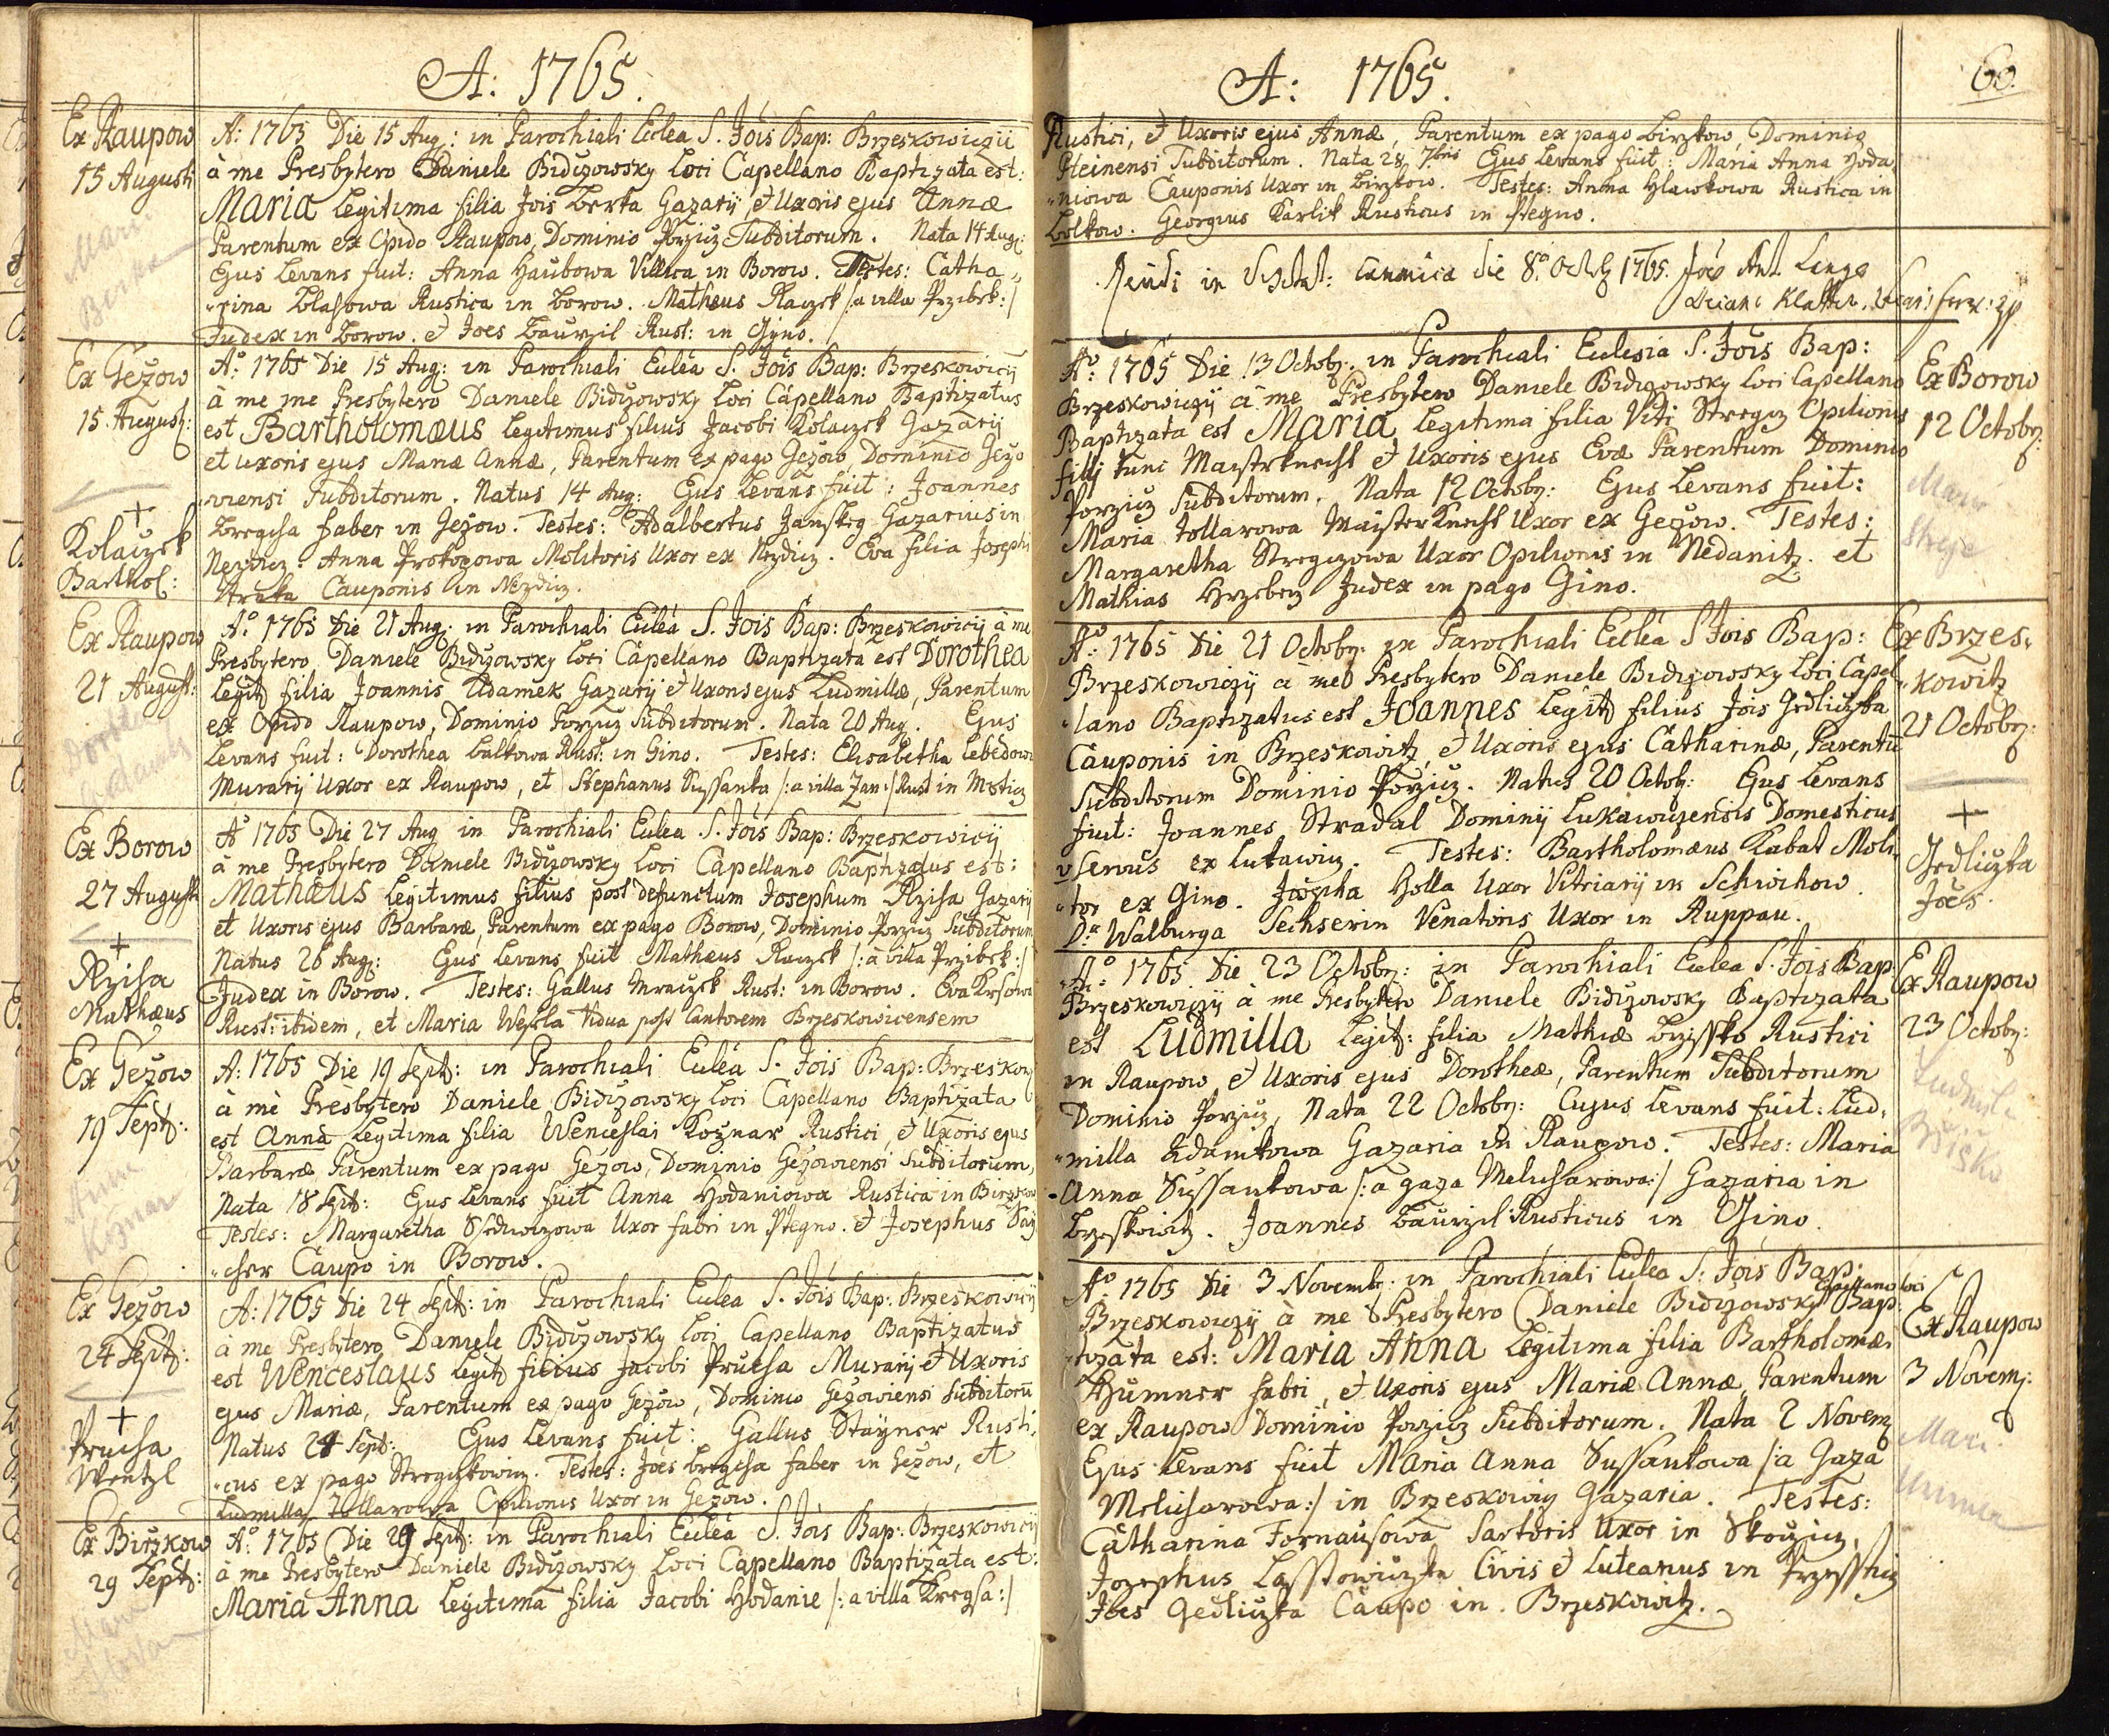 A: 1765.
Ex Raupow
15 Augusti
A: 1765 Die 15 Aug: in Parochiali Eclea S. Jois Bap: Brzeskowiczii
à me Presbytero Daniele Bidizowsky Loci Capellano Baptizata est:
Maria Legitima filia Jois Berka Gazarij, et Uxoris ejus Annæ
Parentum ex Opido Raupow, Dominio Porzicz Subditorum. Nata 14 Aug:
Ejus Levans fuit: Anna Haubowa Villica in Borow. Testes: Catha„
„rina Blasowa Rustica in Borow. Matheus Raczek /: a villa Przibek :/
Judex in Borow. et Joes Baurzil Rust: in Gyno.
Ex Gezow
15 August:
+
Kolaczek
Barthol:
A: 1765 Die 15 Aug: in Parochiali Eclea S. Jois Bap: Brzeskowicij
à me me Presbytero Daniele Bidizowsky Loci Capellano Baptizatus
est Bartholomæus Legitimus filius Jacobi Kolaczek Gazarij
et uxoris ejus Mariæ Annæ, Parentum ex pago Gezow Dominio Gezo
„viensi Subditorum. Natus 14 Aug: Ejus Levans fuit: Joannes
Bregcha faber in Gezow. Testes: Adalbertus Janskeg Gazarius in
Nezdicz. Anna Prokopowa Molitoris Uxor ex Nezdicz. Eva filia Josephi
Straka Cauponis in Nezdicz.
Ex Raupow
21 August:
A: 1765 Die 21 Aug: in Parochiali Eclea S. Jois Bap: Brzeskowicij à me
Presbytero Daniele Bidizowsky Loci Capellano Baptizata est Dorothea
Legit: filia Joannis Adamek Gazarij et Uxoris ejus Ludmillæ, Parentum
ex Opido Raupow, Dominio Porzicz Subditorum. Nata 20 Aug. Ejus
Levans fuit: Dorothea Balkowa Rust: in Gino. Testes: Elisabetha Lebedowa
Murarij Uxor ex Raupow, et Stephanus Sussanka /: a villa Jan :/ Rust in Msticz
Ex Borow
27 August
+
Rzisa
Mathæus
A: 1765 Die 27 Aug in Parochiali Eclea S. Jois Bap: Brzeskowicij
à me Presbytero Daniele Bidizowsky Loci Capellano Baptizatus est:
Mathæus Legitimus filius post defunctum Josephum Rzisa Gazarij
et Uxoris ejus Barbaræ, Parentum ex pago Borow, Dominio Porzicz Subditorum
Natus 26 Aug: Ejus Levans fuit Mathæus Raczek /: à villa Przibek :/
Judex in Borow. Testes: Gallus Mraczek Rust: in Borow. Eva Krsowa
Rust: ibidem, et Maria Wesela Vidua post Cantorem Brzeskowicensem
Ex Gezow
19 Sept:
A: 1765 Die 19 Sept: in Parochiali Eclea S. Jois Bap: Brzeskow
à me Presbytero Daniele Bidizowsky Loci Capellano Baptizata
est Anna Legitima filia Wenceslai Koznar Rustici, et Uxoris ejus
Barbaræ Parentum ex pago Gezow, Dominio Gezowiensi Subditorum,
Nata 18 Sept: Ejus Levans fuit Anna Hodaniowa Rustica in Birzkow
Testes: Margaretha Sedlwiczowa Uxor fabri in Ptegno. et Josephus Say
„cher Caupo in Borow.
Ex Gezow
24 Sept:
+
Prucha
Wentzl
A: 1765 Die 24 Sept: in Parochiali Eclea S. Jois Bap: Brzeskowicij
à me Presbytero Daniele Bidizowsky Loci Capellano Baptizatus
est Wenceslaus Legit: filius Jacobi Prucha Murarij et Uxoris
ejus Mariæ, Parentum ex pago Gezow, Dominio Gezowiensi Subditoru
Natus 24 Sept: Ejus Levans fuit: Gallus Stayner Rusti,
„cus ex pago Stregczkowicz. Testes: Joes Bregcha faber in Gezow, et
Ludmilla Tollarowa Opilionis Uxor in Gezow.
Ex Birzkow
29 Sept:
A: 1765 Die 29 Sept: in Parochiali Eclea S. Jois Bap: Brzeskowicij
à me Presbytero Daniele Bidizowsky Loci Capellano Baptizata est:
Maria Anna Legitima filia Jacobi Hodanie /: a villa Kregsa :/
A: 1765.
60.
Rustici, et Uxoris ejus Annæ, Parentum ex pago Birzkow, Dominio
Pteinensi Subditorum. Nata 28 7bris Ejus Levans fuit: Maria Anna Hoda„
„niowa Cauponis Uxor in Birzkow. Testes: Anna Hlawkowa Rustica in
Bolkow. Georgius Karlik Rusticus in Ptegno.
in canonica die 8 Octob 1765.
Ex Borow
12 Octobr:
A: 1765 Die 13 Octobr: in Parochiali Eclesia S. Jois Bap:
Brzeskowiczij à me Presbytero Daniele Bidizowsky Loci Capellano
Baptizata est Maria Legitima filia Viti Stregcz Opilionis
filij tunc Maistrknecht et Uxoris ejus Evæ Parentum Dominio
Porzicz Subditorum. Nata 12 Octobr: Ejus Levans fuit:
Maria Tollarowa Maister Knecht Uxor ex Gezow. Testes:
Margaretha Stregczowa Uxor Opilionis in Nedanitz. et
Mathias Hrzebecz Judex in pago Gino.
Ex Brzes„
„kowitz
21 Octobr:
+
Jedliczka
Joes.
A: 1765 Die 21 Octobr: in Parochiali Eclea S Jois Bap:
Brzeskowiczij à me Presbytero Daniele Bidizowsky Loci Capel
„lano Baptizatus est Joannes Legit: filius Jois Jedliczka
Cauponis in Brzeskowitz, et Uxoris ejus Catharinæ, Parentu
Subditorum Dominio Porzicz. Natus 20 Octob: Ejus Levans
fuit: Joannes Stradal Dominij Lukawiczensis Domesticus
servus ex Lukawicz. Testes: Bartholomæus Kabat Moli,
„tor ex Gino. Josepha Holla Uxor Vitriarij in Schwihow.
Da Walburga Sechserin Venatoris Uxor in Ruppau.
Ex Raupow
23 Octobr:
A: 1765 Die 23 Octobr: in Parochiali Eclea S. Jois Bap
Brzeskowiczij à me Presbytero Daniele Bidizowsky Baptizata
est Ludmilla Legit: filia Mathiæ Brzissko Rustici
in Raupow, et Uxoris ejus Dorotheæ, Parentum Subditorum
Dominio Porzicz, Nata 22 Octobr: Cujus Levans fuit: Lud,
„milla Adamkowa Gazaria in Raupow. Testes: Maria
Anna Sussankowa /: a gaza Melicharowa :/ Gazaria in
Brzeskowitz. Joannes Baurzil Rusticus in Gino.
Ex Raupow
3 Novem:
A: 1765 Die 3 Novembr: in Parochiali Eclea S: Jois Bap:
Brzeskowiczij à me Presbytero Daniele Bidizowsky Capellano loci Bap:
„tizata est: Maria Anna Legitima filia Bartholomæi
Humner fabri, et Uxoris ejus Mariæ Annæ, Parentum
ex Raupow Dominio Porzicz Subditorum. Nata 2 Novem
Ejus Levans fuit Maria Anna Sussankowa /: a Gaza
Melicharowa :/ in Brzeskowicz Gazaria. Testes:
Catharina Fornausowa Sartoris Uxor in Skoczicz,
Josephus Lasstowiczka Civis et Luteanus in Przessticz
Joes Gedliczka Caupo in Brzeskowitz.